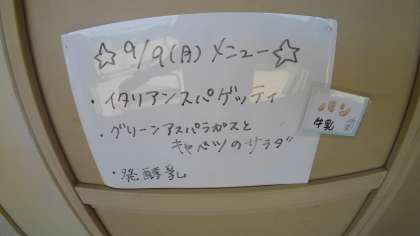 ☆9/9(月)メニュー☆
・イタリアンスパゲッティ
・グリーンアスパラガスと
キャベツのサラダ
・発酵乳
パン
牛乳